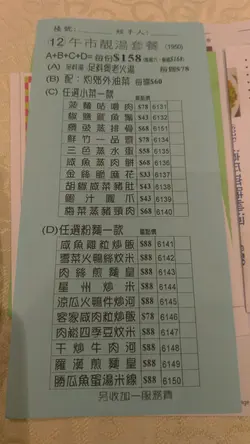 檯號: 經手人:
12 午市靚湯套餐 (1950)
A+B+C+D= 每份$158
(A) 足料湯
(B) 配: 灼郊外油菜 每碟$60
(C) 任選小菜一款 單點價
菠蘿咕嚕肉 $78 6131
$43 6132
豉汁蒸排骨 $68 6133
鮮竹一品 6134
三色蒸水蛋 $58 6135
咸魚蒸肉餅 $68 6136
金銀蛋 $43 6137
胡椒咸菜豬肚 $43 6138
鮑汁鳳爪 $43 6139
梅菜蒸豬頸肉 $68 6140
(D) 任選粉麵一款 單點價
咸魚雞粒炒飯 $88 6141
雪菜火鴨絲炆米 $88 6142
肉絲煎麵皇 $88 6143
星州炒米 $88 6144
涼瓜火鴨件炒河 $88 6145
客家咸肉粒炒飯 $78 6146
肉崧四季豆炆米 $88 6147
干炒牛肉河 $88 6148
羅漢煎麵皇 $88 6149
勝瓜魚蛋湯米線 $88 6150
另收加一服務費